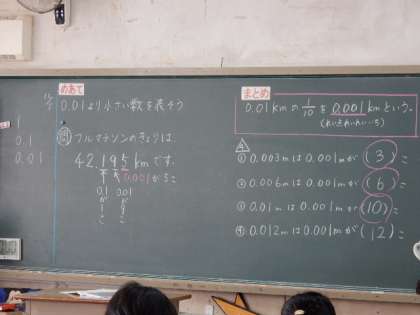 めあて
0.01より小さい数を表そう
1
0.1
0.01
問 フルマラソンのきょりは
42.195 kmです。
0.001が5こ
0.1 0.01
が が
1 9
こ こ
まとめ
0.01kmの1/10を0.001kmという。
(れいてんれいれいいち)
① 0.003mは0.001mが(3)こ
② 0.006mは0.001mが(6)こ
③ 0.01mは0.001mが(10)こ
④ 0.012mは0.001mが(12)こ